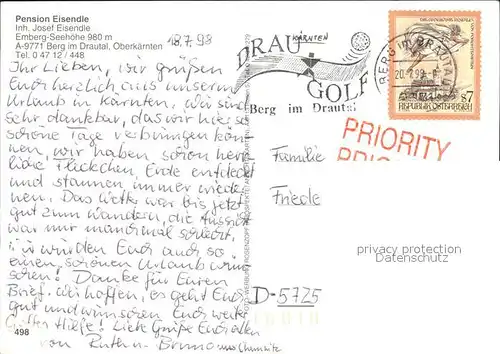 Pension Eisendle
Inh. Josef Eisendle
Emberg-Seehöhe 980 m
A-9771 Berg im Drautal, Oberkärnten
Tel. 0 47 12 / 448
18.7.98
Ihr Lieben, wir grüßen
Euch herzlich aus unserm
Urlaub in Kärnten. Wir sind
sehr dankbar, das wir hier so
schöne Tage verbringen kön-
nen, wir haben schon herr-
liche Fleckchen Erde entdeckt
und staunen immer wieder
neu. Das Wetter war bis jetzt
gut zum Wandern, die Aussicht
war nur manchmal schlecht.
Wir würden Euch auch so
einen schönen Urlaub wün-
schen! Danke für Euren
Brief. Wir hoffen, es geht Euch
gut und wünschen Euch weiter
Gottes Hilfe! Liebe Grüße Euch allen
von Ruth u. Bruno aus Chemnitz
498
DRAU
KÄRNTEN
GOLF
Berg im Drautal
BERG im DRAUTAL
REPUBLIK ÖSTERREICH
S7
PRIORITY
Familie
Friede
D-5725
privater Ansichtskarten-
Datenschutz